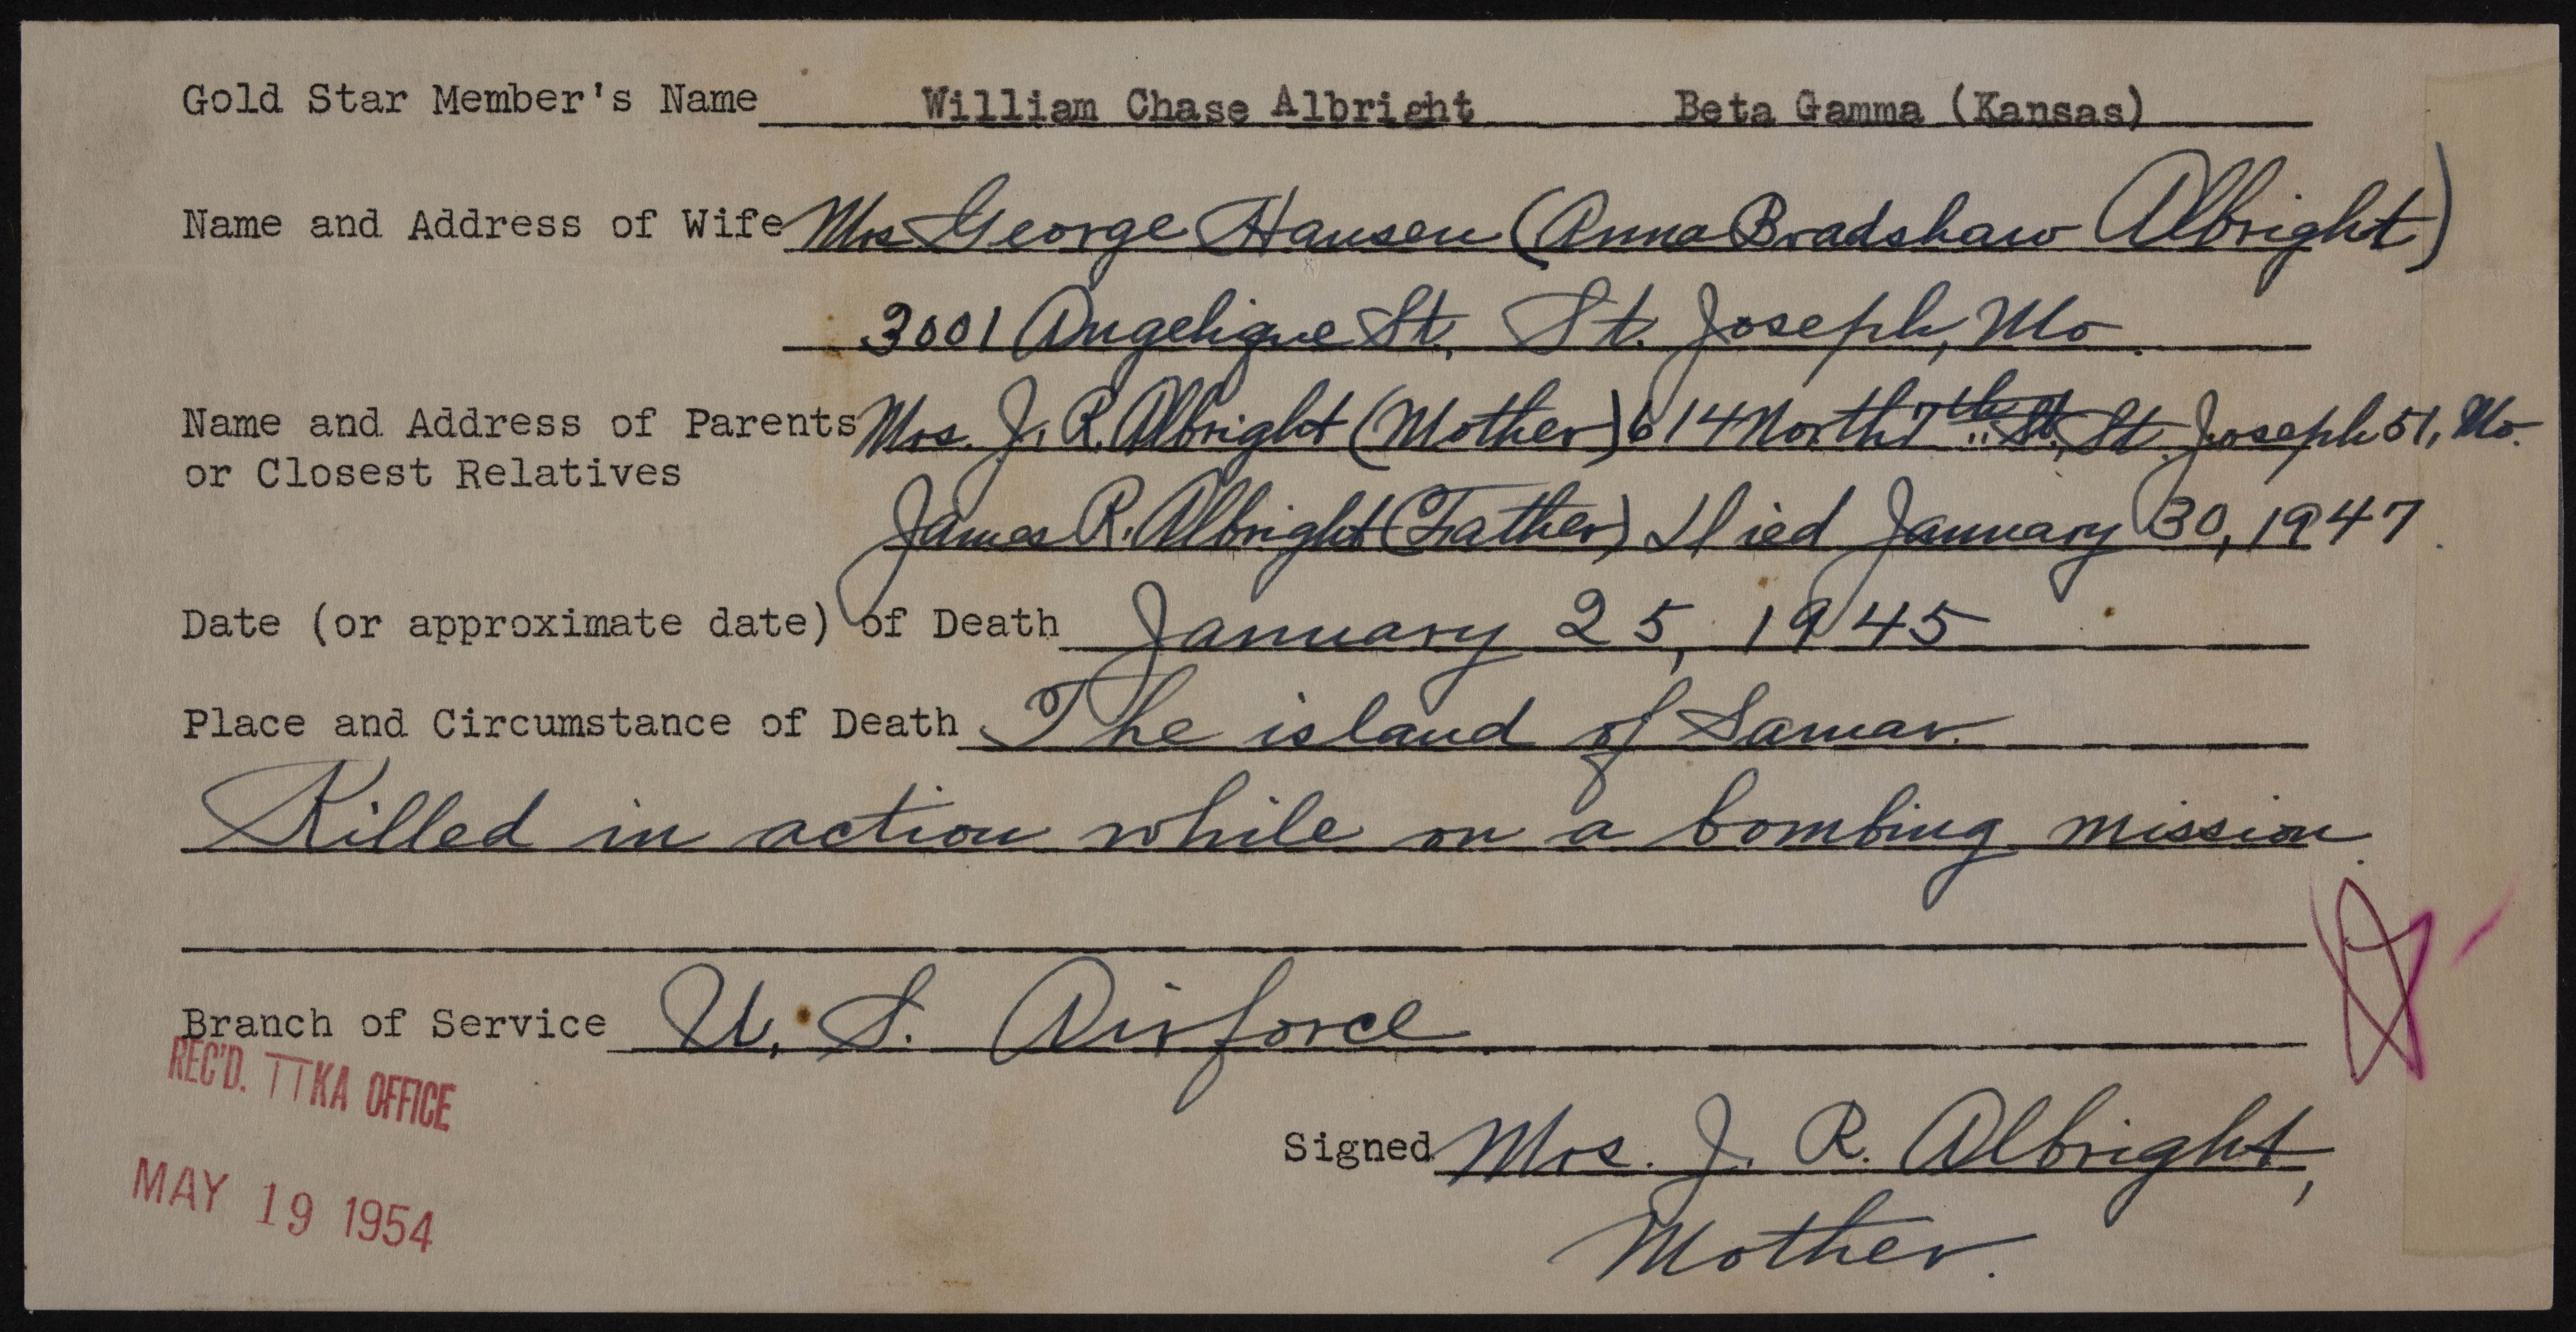 Gold Star Member's Name William Chase Albright Beta Gamma (Kansas)
Name and Address of Wife Mrs George Hansen (Anna Bradshaw Albright)
3001 Angelique St., St. Joseph, Mo.
Name and Address of Parents Mrs. J. R. Albright (Mother) 614 North 7th St., St. Joseph 51, Mo.
or Closest Relatives
James R. Albright (Father) Died January 30, 1947.
Date (or approximate date) of Death January 25, 1945
Place and Circumstance of Death The island of Samar.
Killed in action while on a bombing mission.
Branch of Service U. S. Airforce
REC'D. TTKA OFFICE
Signed Mrs. J. R. Albright,
MAY 19 1954
Mother.